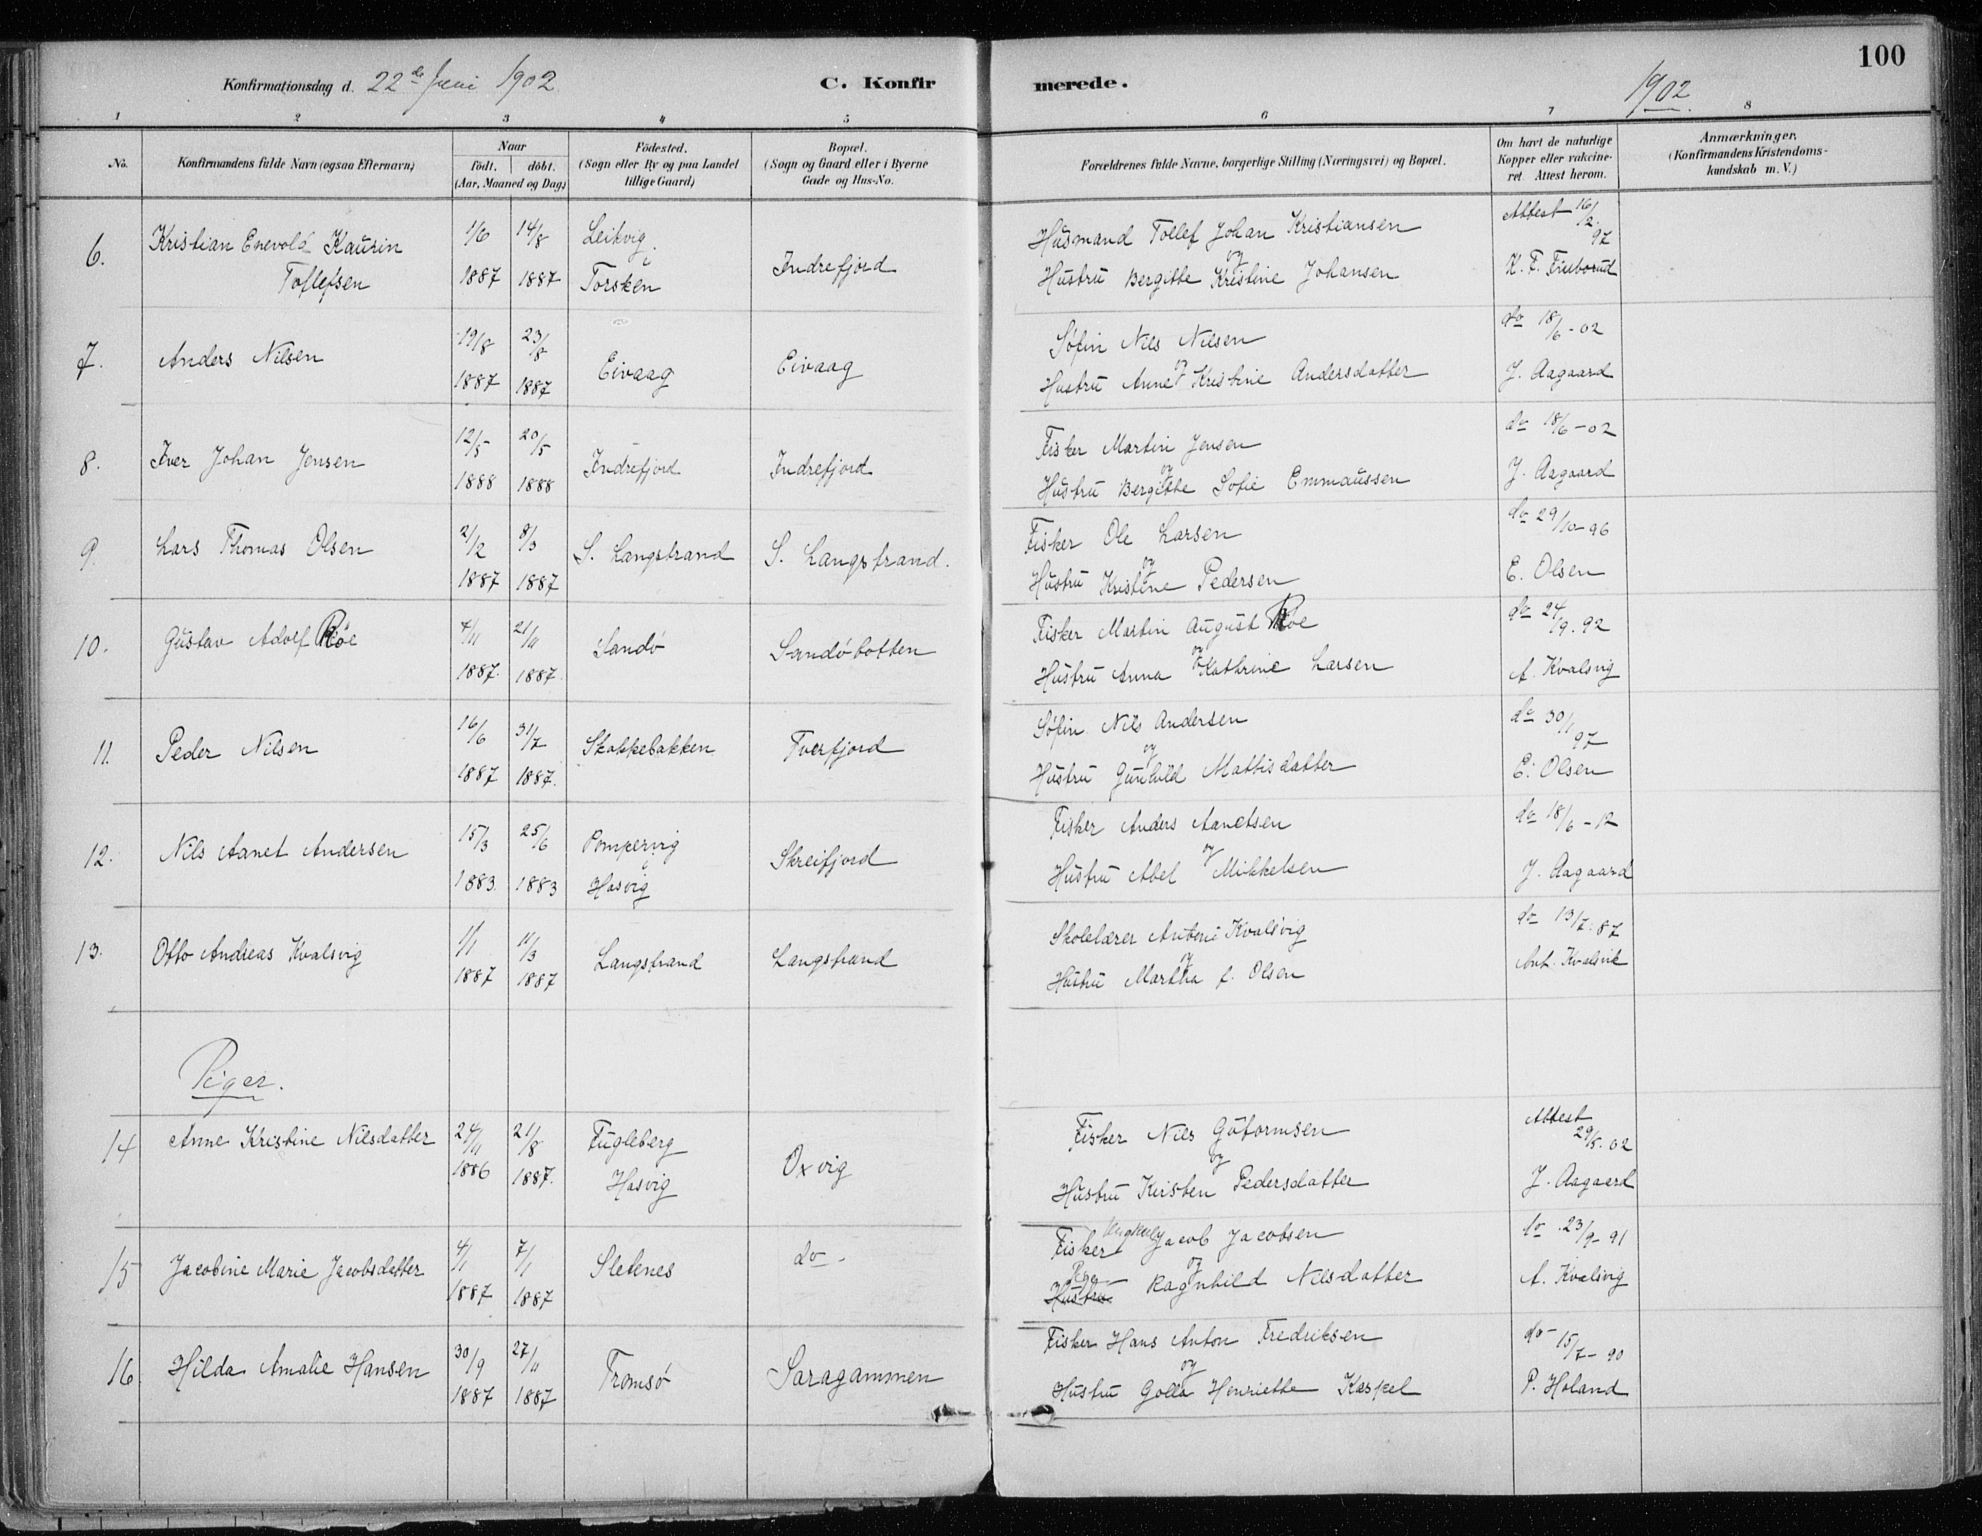 Konfirmationsdag d. 22de Juni 1902
C. Konfirmerede.
1902
100
1 2 3 4 5 6 7 8
No.
Konfirmandens fulde Navn (ogsaa Efternavn)
Naar
født. døbt.
(Aar, Maaned og Dag)
Fødested.
(Sogn eller By og paa Landet
tillige Gaard)
Bopæl.
(Sogn og Gaard eller i Byerne
Gade og Hus-No.
Forældrenes fulde Navne, borgerlige Stilling (Næringsvei) og Bopæl.
Om havt de naturlige
Kopper eller vakcine-
ret. Attest herom.
Anmærkninger,
(Konfirmandens Kristendoms-
kundskab m. V.)
6. Kristian Enevold Kaurin 1/6 14/8 Leikvig Husmand Tollef Johan Kristiansen Attest 16/2 97
og
Toflefsen 1887 1887 Torsken Indrefjord Hustru Bergitte Kristine Johansen K. F. Finborud
7. Anders Nilsen 19/8 23/8 Eivaag Eivaag Søfin Nils Nilsen do 18/6-02
og
1887 1887 Hustru Anne Kristine Andersdatter J. Aagaard
8. Iver Johan Jensen 12/5 20/5 Indrefjord Indrefjord Fisker Martin Jensen do 18/6-02
og
1888 1888 Hustru Bergitte Sofie Emmaussen J. Aagaard
9. Lars Thomas Olsen 2/2 8/3 S. Langstrand S. Langstrand. Fisker Ole Larsen do 29/10-96
og
1887 1887 Hustru Kristine Pedersen E. Olsen
10. Gustav Adolf Röe 4/11 21/11 Sandö Sandöbotten Fisker Martin August Roe do 24/9.92
og
1887. 1887. Hustru Anna Kathrine Larsen A. Kvalsvig
11. Peder Nilsen 16/6 31/7 Skokkebakken Tverfjord Søfin Nils Andersen do 30/1 97
og
1887 1887. Hustru Gunhild Mathisdatter E. Olsen
12. Nils Aanet Andersen 15/3 25/6 Pompervig Skreifjord Fisker Anders Aanetsen do 18/6-12
og
1883. 1883 Hasvig Hustru Abel Mikkelsen J. Aagaard
13. Otto Andreas Kvalsvig 1/1 11/3 Langstrand Langstrand Skolelærer Antoni Kvalsvig do 13/7.87
og
1887 1887 Hustru Martha f. Olsen Ant. Kvalsvik
Piger.
14 Anne Kristine Nilsdatter 24/11 21/8 Fugleberg Oxvig Fisker Nils Gutormsen Attest 29/5.02
og
1886 1887. Hasvig Hustru Kirsten Pedersdatter J. Aagaard
15 Jacobine Marie Jacobsdatter 4/1 7/1 Sletnes do - Fisker Ungkarl Jacob Jacobsen do 23/9-91
og
1887 1887 Hustru Pige Ragnhild Nilsdatter A. Kvalsvig
16 Hilda Amalie Hansen 30/9 27/11 Tromsø Saragammen Fisker Hans Anton Fredriksen do 15/7-90
og
1887 1887 Hustru Golla Henriette Kaspel P. Holand